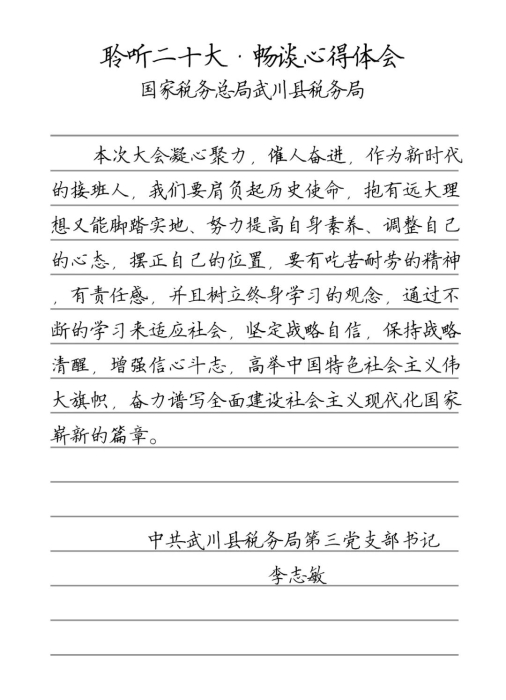 聆听二十大·畅谈心得体会
国家税务总局武川县税务局
本次大会凝心聚力，催人奋进，作为新时代
的接班人，我们要肩负起历史使命，抱有远大理
想又能脚踏实地、努力提高自身素养、调整自己
的心态，摆正自己的位置，要有吃苦耐劳的精神
，有责任感，并且树立终身学习的观念，通过不
断的学习来适应社会，坚定战略自信，保持战略
清醒，增强信心斗志，高举中国特色社会主义伟
大旗帜，奋力谱写全面建设社会主义现代化国家
崭新的篇章。
中共武川县税务局第三党支部书记
李志敏